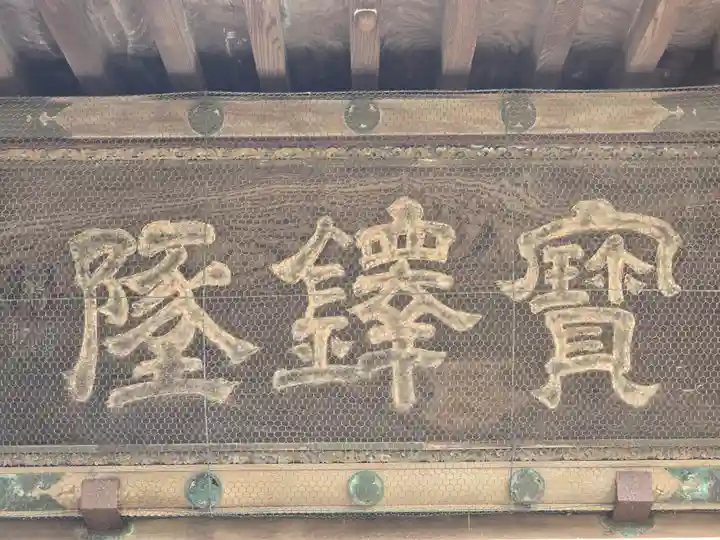 寶鐸隆